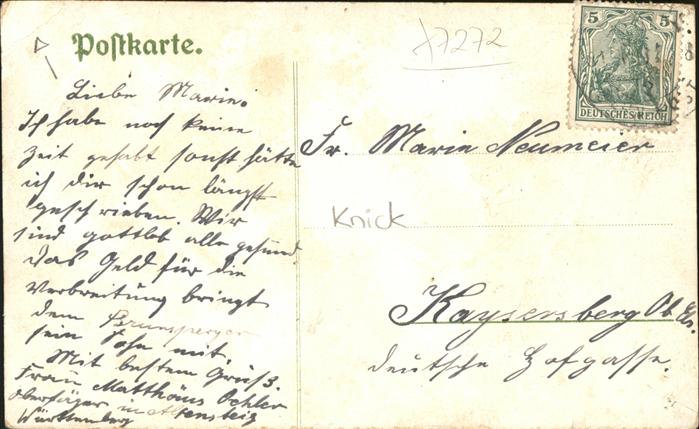 Postkarte.
x7272
5 5
DEUTSCHES REICH
Liebe Marie.
Ich habe noch keine
Zeit gehabt sonst hätte
ich dir schon längst
geschrieben. Wir
sind gottlob alle gesund.
das Geld für die
Verbreitung bringt
dem
sein Sohn mit.
Mit bestem Gruß.
Frau Matthäus Oehler
Oberjäger in Altensteig
Württemberg
Fr. Marie Neumeier
Knick
Kaysersberg Ob. Els.
deutsche Hofgasse.